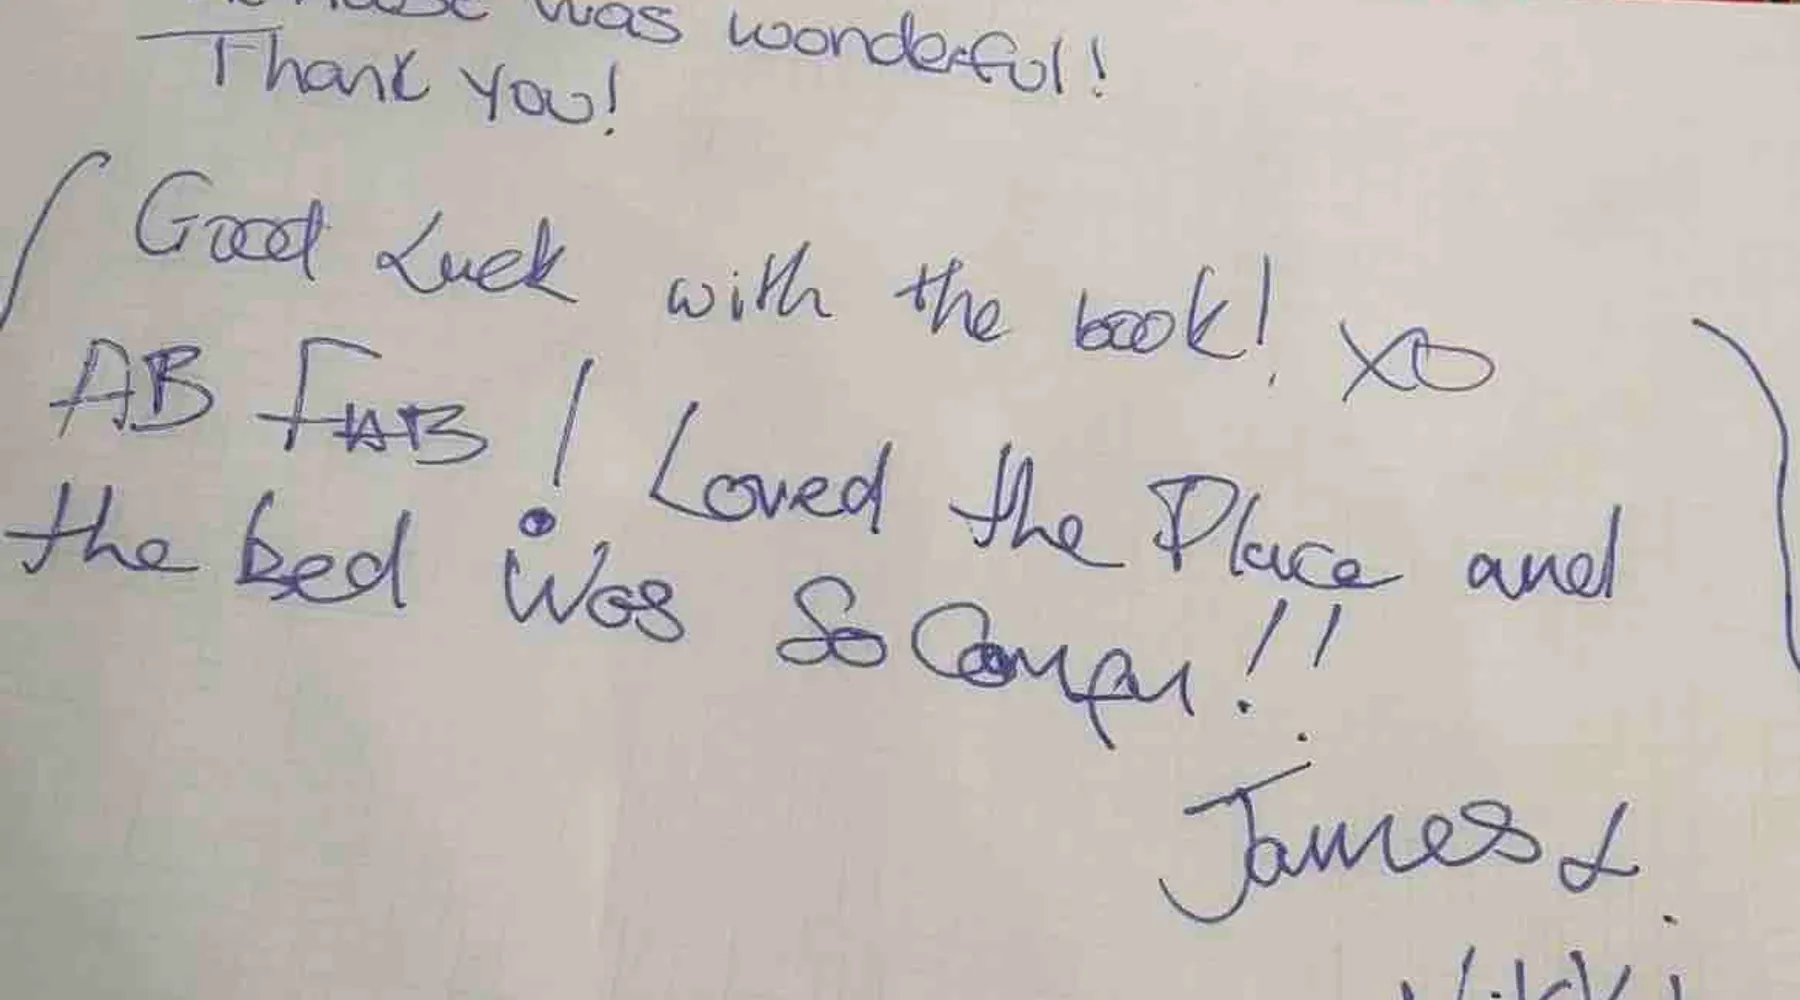 was wonderful!
Thank you!
Good Luck with the book! XO
AB FAB! Loved the Place and
the bed was So Comfy!!
James &